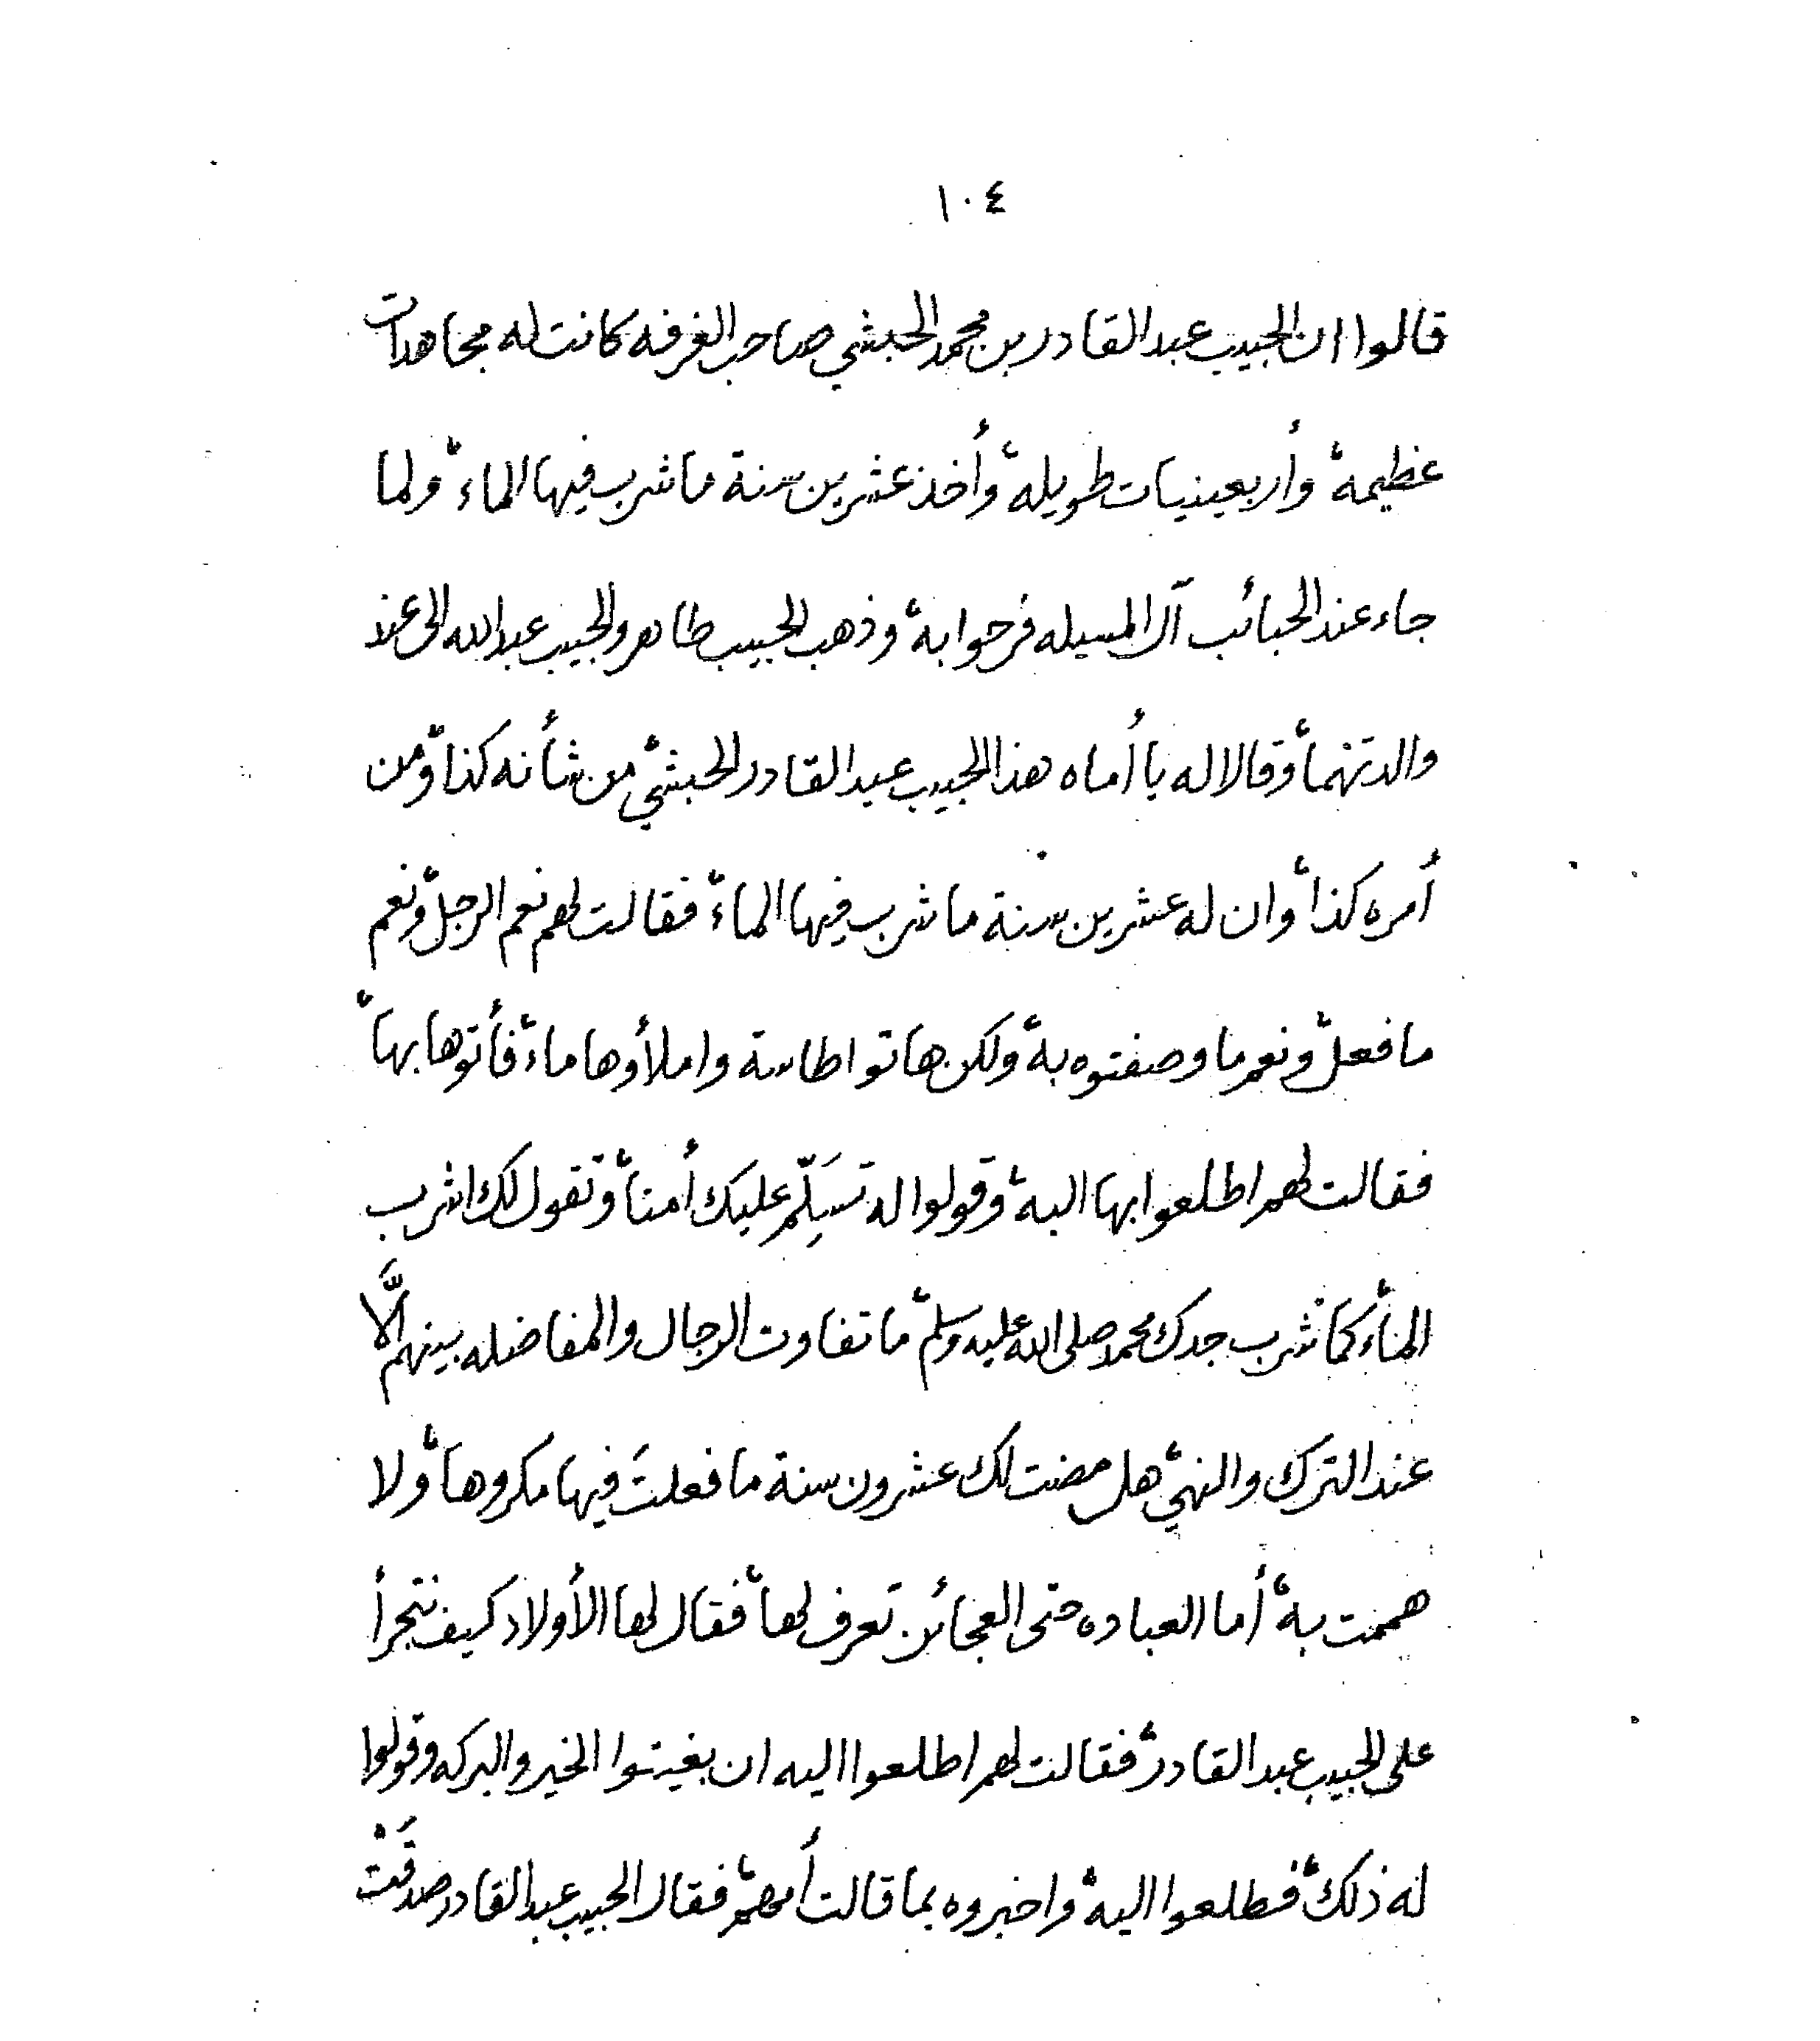 ١٠٤
قالوا ان الحبيب عبد القادر بن محمد الحبشي صاحب الغرفه كانت له مجاهدات
عظيمة، وأربعينيات طويلة، وأخذ عشرين سنة ما شرب فيها الماء، ولما
جاء عند الحبائب آل المسيله فرحوا به، وذهب الحبيب طاهر والحبيب عبدالله الى عند
والدتهما، وقالا له يا أماه هذا الحبيب عبد القادر الحبشي، من شأنه كذا، ومن
أمره كذا، وان له عشرين سنة ما شرب فيها الماء، فقالت لهم نعم الرجل، ونعم
ما فعل، ونعم ما وصفتوه به، ولكن هاتوا طاسة واملأوها ماء، فأتوها بها،
فقالت لهم اطلعوا بها اليه، وقولوا له تسَلِّم عليك أمنا، وتقول لك اشرب
الماء، كما شرب جدك محمد صلى الله عليه وسلم، ما تفاوت الرجال والمفاضله بينهم الَّا
عند الترك والنهي، هل مضت لك عشرون سنة ما فعلتَ فيها مكروها، ولا
هممت به، أما العباده حتى العجائز تعرف لها، فقال لها الأولاد كيف نتجرأ
على الحبيب عبد القادر، فقالت لهم اطلعوا اليه ان بغيتوا الخير والبركه وقولوا
له ذلك، فطلعوا اليه، واخبروه بما قالت أمهم، فقال الحبيب عبد القادر صدقَتْ